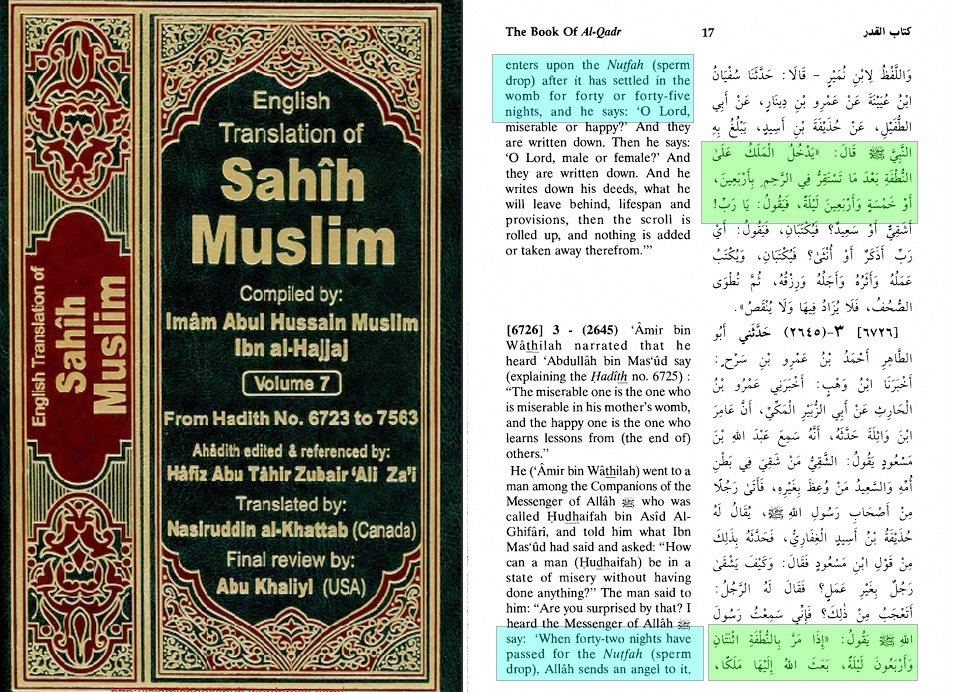 English Translation of
Sahîh
Muslim
English
Translation of
Sahîh
Muslim
Compiled by:
Imâm Abul Hussain Muslim
Ibn al-Hajjaj
Volume 7
From Hadith No. 6723 to 7563
Ahâdith edited & referenced by:
Hâfiz Abu Tâhir Zubair 'Ali Za'i
Translated by:
Nasiruddin al-Khattab (Canada)
Final review by:
Abu Khaliyl (USA)
The Book Of Al-Qadr
17
كتاب القدر
enters upon the Nutfah (sperm
drop) after it has settled in the
womb for forty or forty-five
nights, and he says: 'O Lord,
miserable or happy?' And they
are written down. Then he says:
'O Lord, male or female?' And
they are written down. And he
writes down his deeds, what he
will leave behind, lifespan and
provisions, then the scroll is
rolled up, and nothing is added
or taken away therefrom.'"
[6726] 3 - (2645) 'Âmir bin
Wâthilah narrated that he
heard 'Abdullâh bin Mas'ûd say
(explaining the Hadîth no. 6725) :
"The miserable one is the one who
is miserable in his mother's womb,
and the happy one is the one who
learns lessons from (the end of)
others."
He ('Âmir bin Wâthilah) went to a
man among the Companions of the
Messenger of Allâh ﷺ who was
called Hudhaifah bin Asîd Al-
Ghifârî, and told him what Ibn
Mas'ûd had said and asked: "How
can a man (Hudhaifah) be in a
state of misery without having
done anything?" The man said to
him: "Are you surprised by that? I
heard the Messenger of Allâh ﷺ
say: 'When forty-two nights have
passed for the Nutfah (sperm
drop), Allâh sends an angel to it,
وَاللَّفْظُ لِابْنِ نُمَيْرٍ - قَالَا: حَدَّثَنَا سُفْيَانُ
ابْنُ عُيَيْنَةَ عَنْ عَمْرِو بْنِ دِينَارٍ، عَنْ أَبِي
الطُّفَيْلِ، عَنْ حُذَيْفَةَ بْنِ أَسِيدٍ، يَبْلُغُ بِهِ
النَّبِيَّ ﷺ قَالَ: «يَدْخُلُ الْمَلَكُ عَلَى
النُّطْفَةِ بَعْدَ مَا تَسْتَقِرُّ فِي الرَّحِمِ بِأَرْبَعِينَ،
أَوْ خَمْسَةٍ وَأَرْبَعِينَ لَيْلَةً، فَيَقُولُ: يَا رَبِّ!
أَشَقِيٌّ أَوْ سَعِيدٌ؟ فَيُكْتَبَانِ، فَيَقُولُ: أَيْ
رَبِّ أَذَكَرٌ أَوْ أُنْثَى؟ فَيُكْتَبَانِ، وَيُكْتَبُ
عَمَلُهُ وَأَثَرُهُ وَأَجَلُهُ وَرِزْقُهُ، ثُمَّ تُطْوَى
الصُّحُفُ، فَلَا يُزَادُ فِيهَا وَلَا يُنْقَصُ».
[٦٧٢٦] ٣-(٢٦٤٥) حَدَّثَنِي أَبُو
الطَّاهِرِ أَحْمَدُ بْنُ عَمْرِو بْنِ سَرْحٍ:
أَخْبَرَنَا ابْنُ وَهْبٍ: أَخْبَرَنِي عَمْرُو بْنُ
الْحَارِثِ عَنْ أَبِي الزُّبَيْرِ الْمَكِّيِّ، أَنَّ عَامِرَ
ابْنَ وَاثِلَةَ حَدَّثَهُ، أَنَّهُ سَمِعَ عَبْدَ اللهِ بْنَ
مَسْعُودٍ يَقُولُ: الشَّقِيُّ مَنْ شَقِيَ فِي بَطْنِ
أُمِّهِ وَالسَّعِيدُ مَنْ وُعِظَ بِغَيْرِهِ، فَأَتَى رَجُلًا
مِنْ أَصْحَابِ رَسُولِ اللهِ ﷺ، يُقَالُ لَهُ
حُذَيْفَةُ بْنُ أَسِيدٍ الْغِفَارِيُّ، فَحَدَّثَهُ بِذَلِكَ
مِنْ قَوْلِ ابْنِ مَسْعُودٍ فَقَالَ: وَكَيْفَ يَشْقَى
رَجُلٌ بِغَيْرِ عَمَلٍ؟ فَقَالَ لَهُ الرَّجُلُ:
أَتَعْجَبُ مِنْ ذَلِكَ؟ فَإِنِّي سَمِعْتُ رَسُولَ
اللهِ ﷺ يَقُولُ: «إِذَا مَرَّ بِالنُّطْفَةِ اثْنَتَانِ
وَأَرْبَعُونَ لَيْلَةً، بَعَثَ اللهُ إِلَيْهَا مَلَكًا،